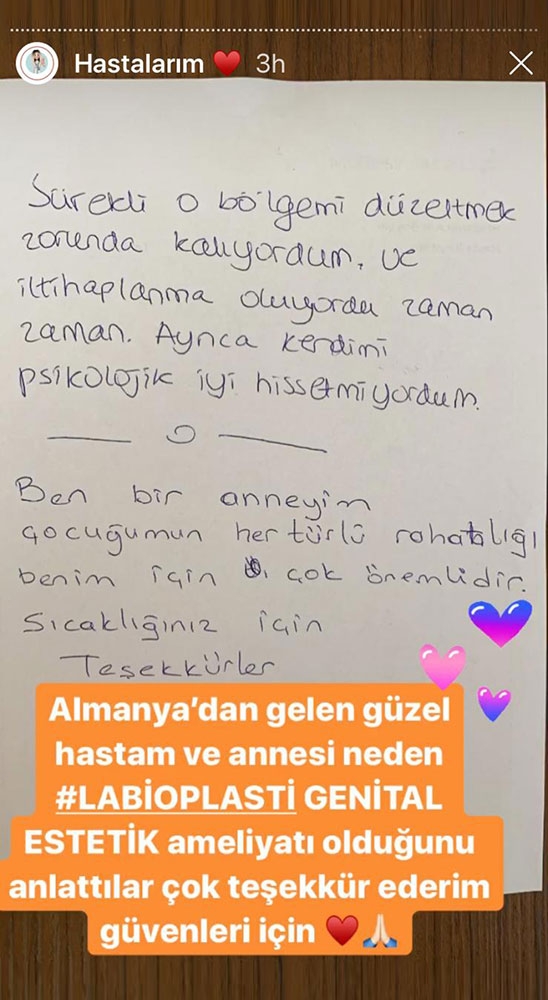 Hastalarım ♥️ 3h
Sürekli o bölgemi düzeltmek
zorunda kalıyordum, ve
iltihaplanma oluyordu zaman
zaman. Ayrıca kendimi
psikolojik iyi hissetmiyordum.
Ben bir anneyim
çocuğumun her türlü rahatlığı
benim için çok önemlidir.
Sıcaklığınız için
Teşekkürler
Almanya’dan gelen güzel
hastam ve annesi neden
#LABİOPLASTİ GENİTAL
ESTETİK ameliyatı olduğunu
anlattılar çok teşekkür ederim
güvenleri için ♥️🙏🏻